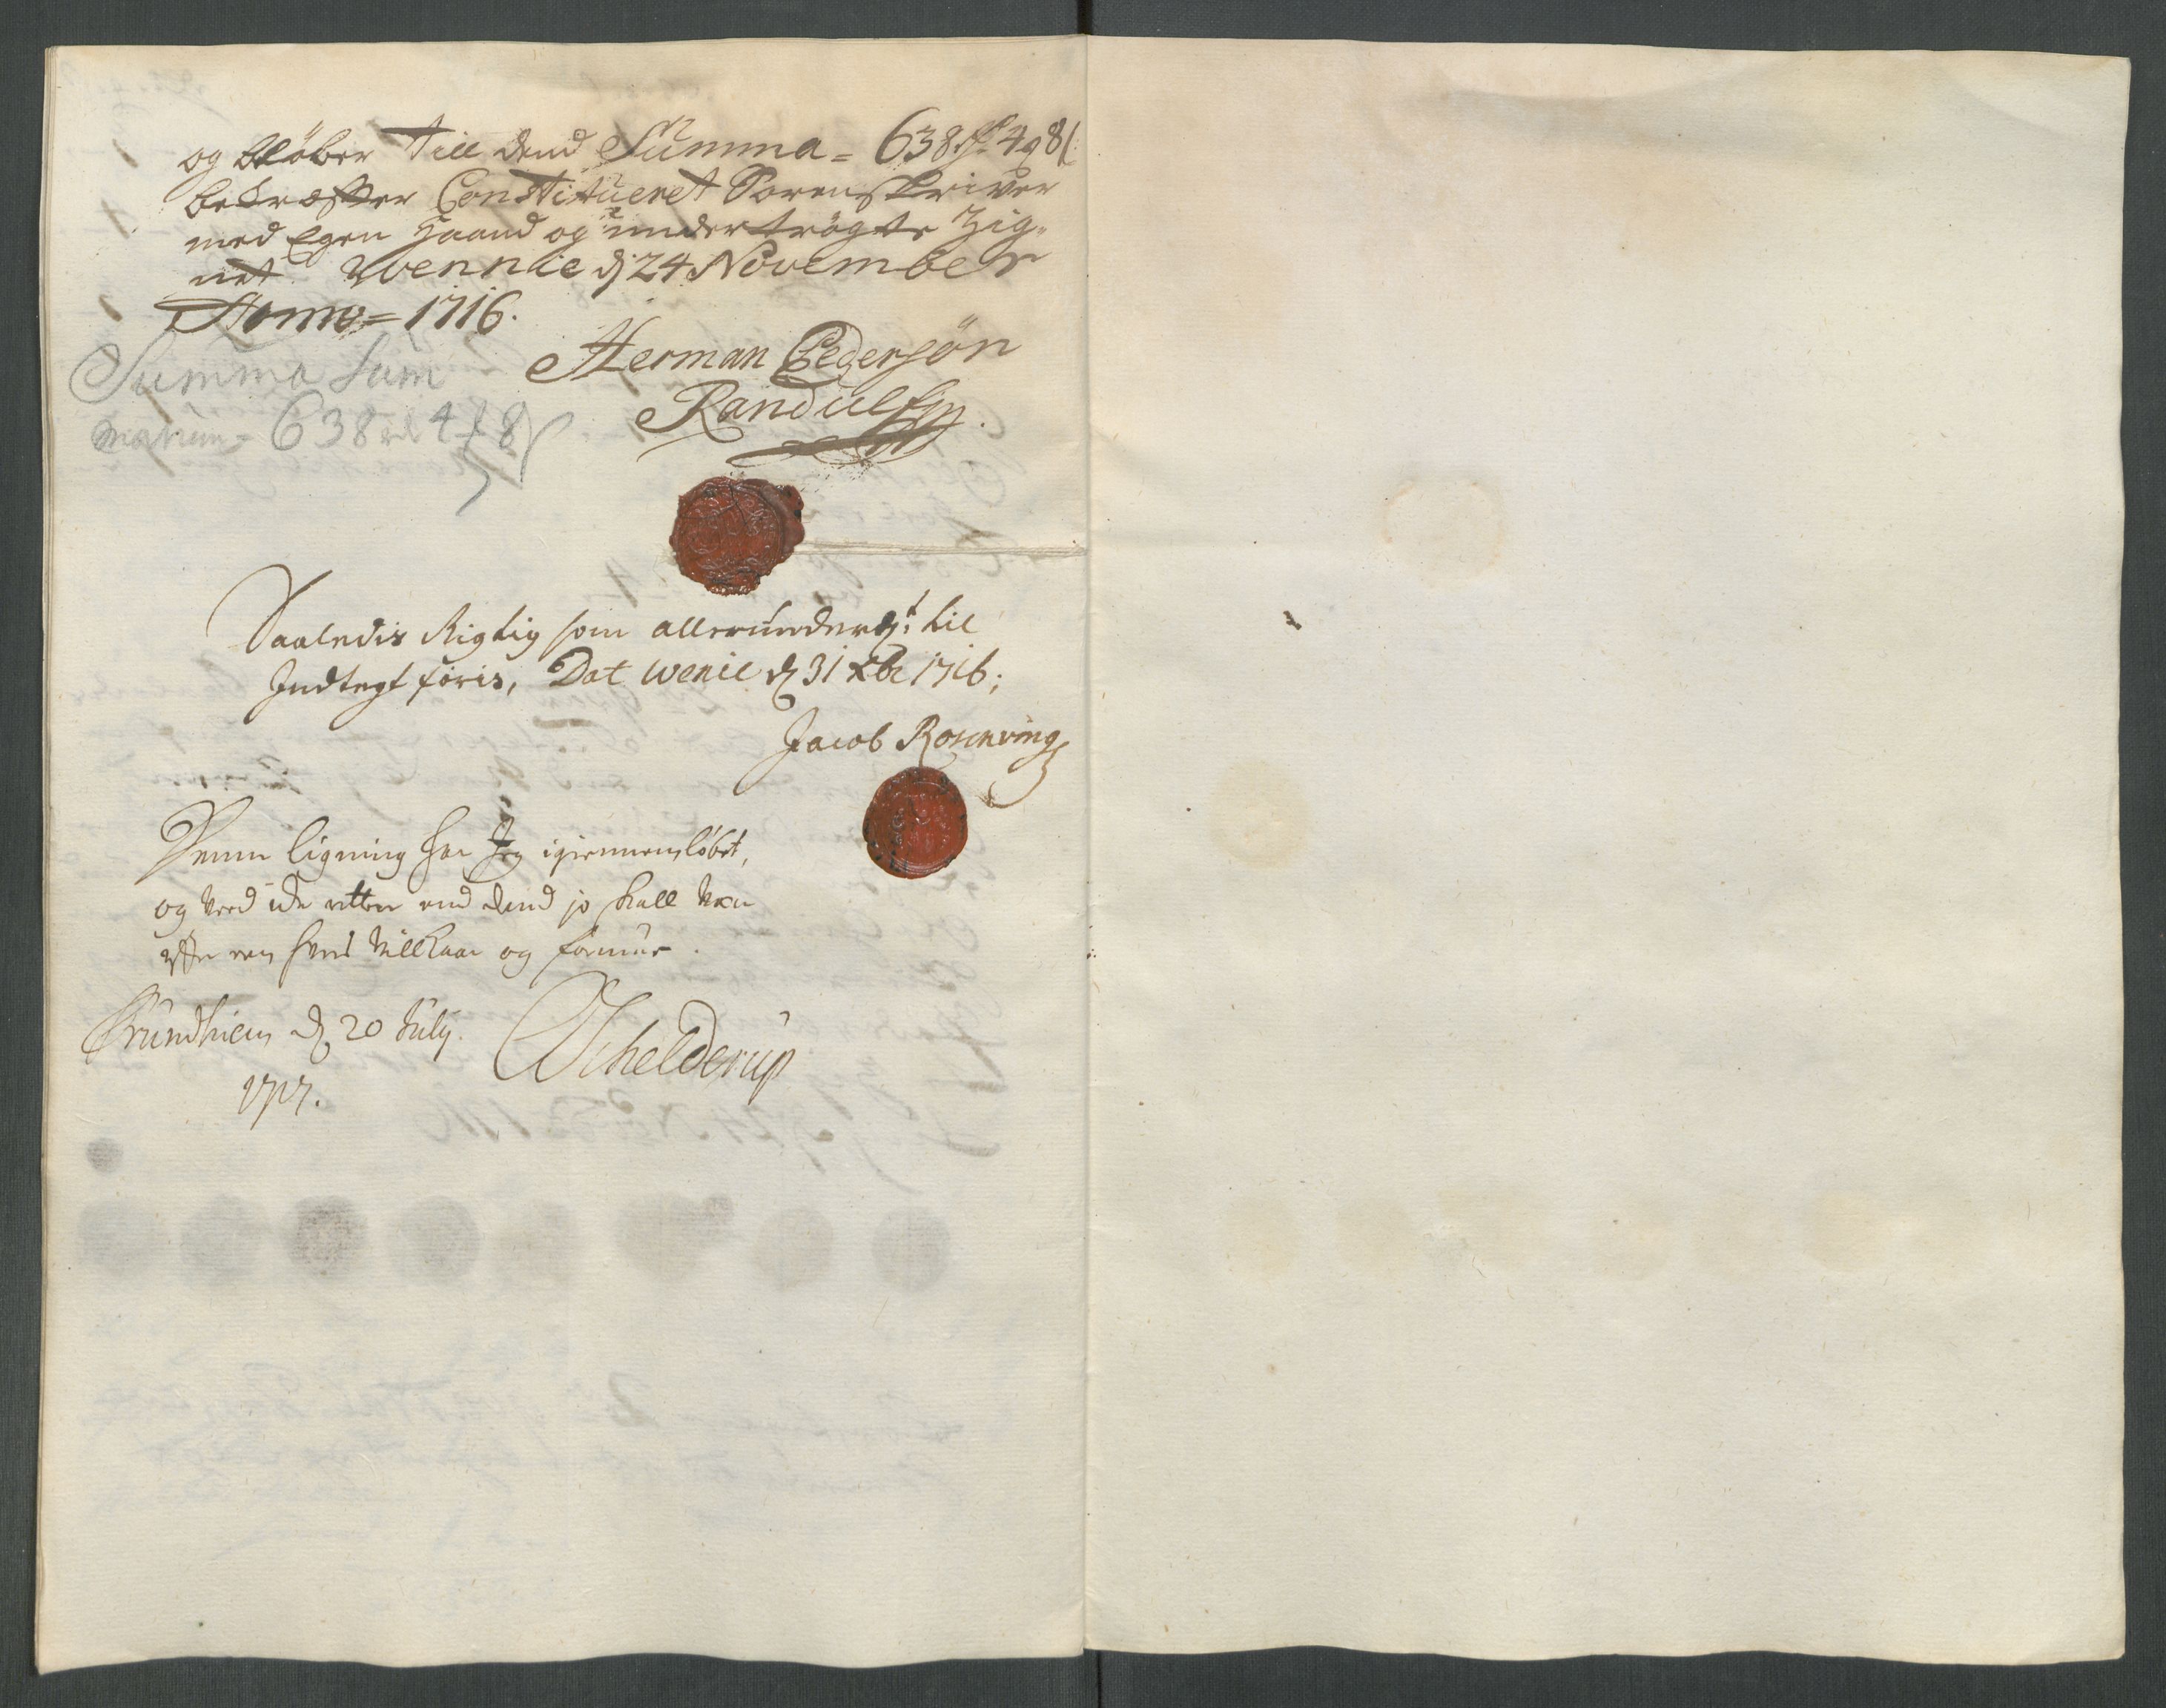 og beløber till dend Summa = 638 rdr 4 ꝝ 8 s
bekræfter Constitueret Sorenskriver
med Egen Haand og undertrögte Zig-
net Wennie dj 24 November
Anno = 1716.
Herman Pedersön
Randulff
Summa Sum
marum = 638 rd 4 ꝝ 8 s
Saaledis Rigtig som allerunderdst: til
Indtegt føris, Dat Wenie d 31 Xbr 1716;
Jacob Rosenving
Denne ligning har Jeg igiennemløbet,
og veed ike retter end dend jo skall være
efter en hvers villkaar og formue.
Trundhiem d 20 Julij
1717.
Schelderup